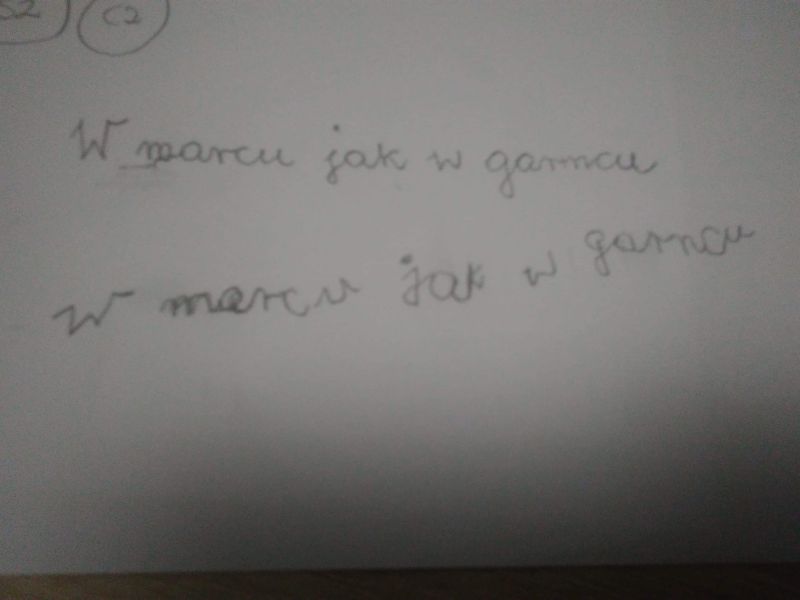 C2
W marcu jak w garncu
W marcu jak w garncu